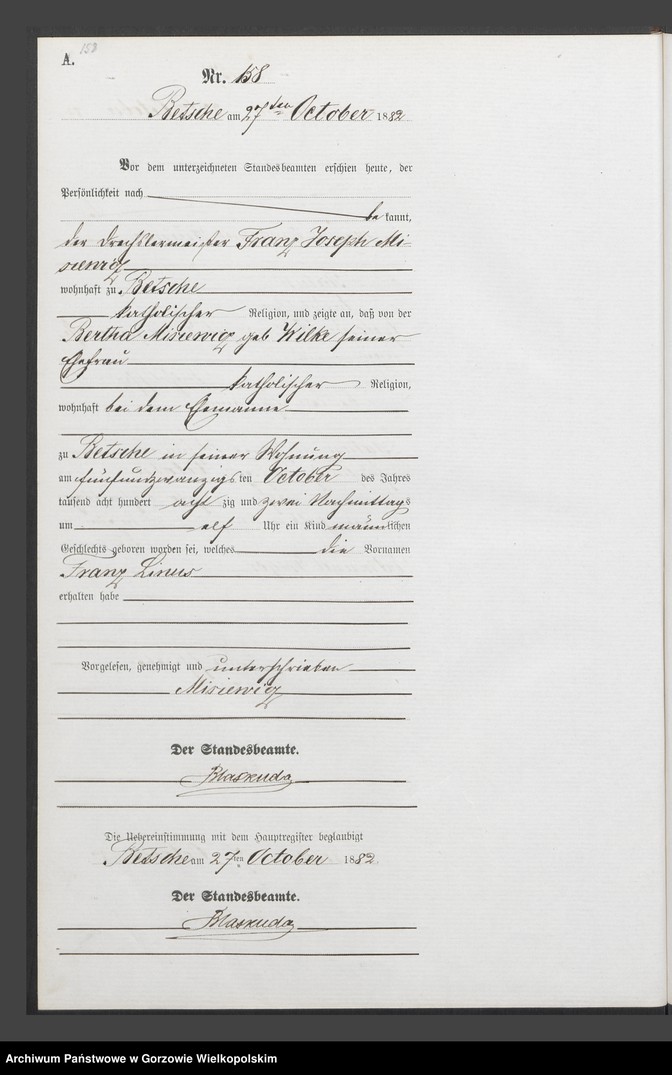 A.
158
Nr. 158
Betsche am 27ten October 1882
Vor dem unterzeichneten Standesbeamten erschien heute, der
Persönlichkeit nach
be kannt,
der Drechslermeister Franz Joseph Mi-
siewicz
wohnhaft zu Betsche
katholischer Religion, und zeigte an, daß von der
Bertha Misiewicz geb Wilke seiner
Ehefrau
katholischer Religion,
wohnhaft bei dem Ehemanne
zu Betsche in seiner Wohnung
am fünfundzwanzigsten October des Jahres
tausend acht hundert acht zig und zwei Nachmittags
um elf Uhr ein Kind männlichen
Geschlechts geboren worden sei, welches die Vornamen
Franz Linus
erhalten habe
Vorgelesen, genehmigt und unterschrieben
Misiewicz
Der Standesbeamte.
Blaskuda
Die Uebereinstimmung mit dem Hauptregister beglaubigt
Betsche am 27ten October 1882
Der Standesbeamte.
Blaskuda
Archiwum Państwowe w Gorzowie Wielkopolskim